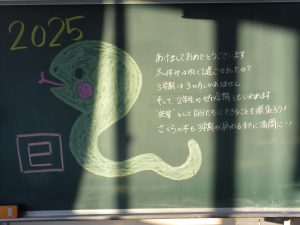 2025
あけましておめでとうございます
冬休みは楽しく過ごせましたか?
3学期は3か月しかありません
そして2年生のゼロ学期ともいわれます
"先輩"として自分たちにできることを頑張ろう!
さくらの木も3学期が終わるまでに満開に…!
巳